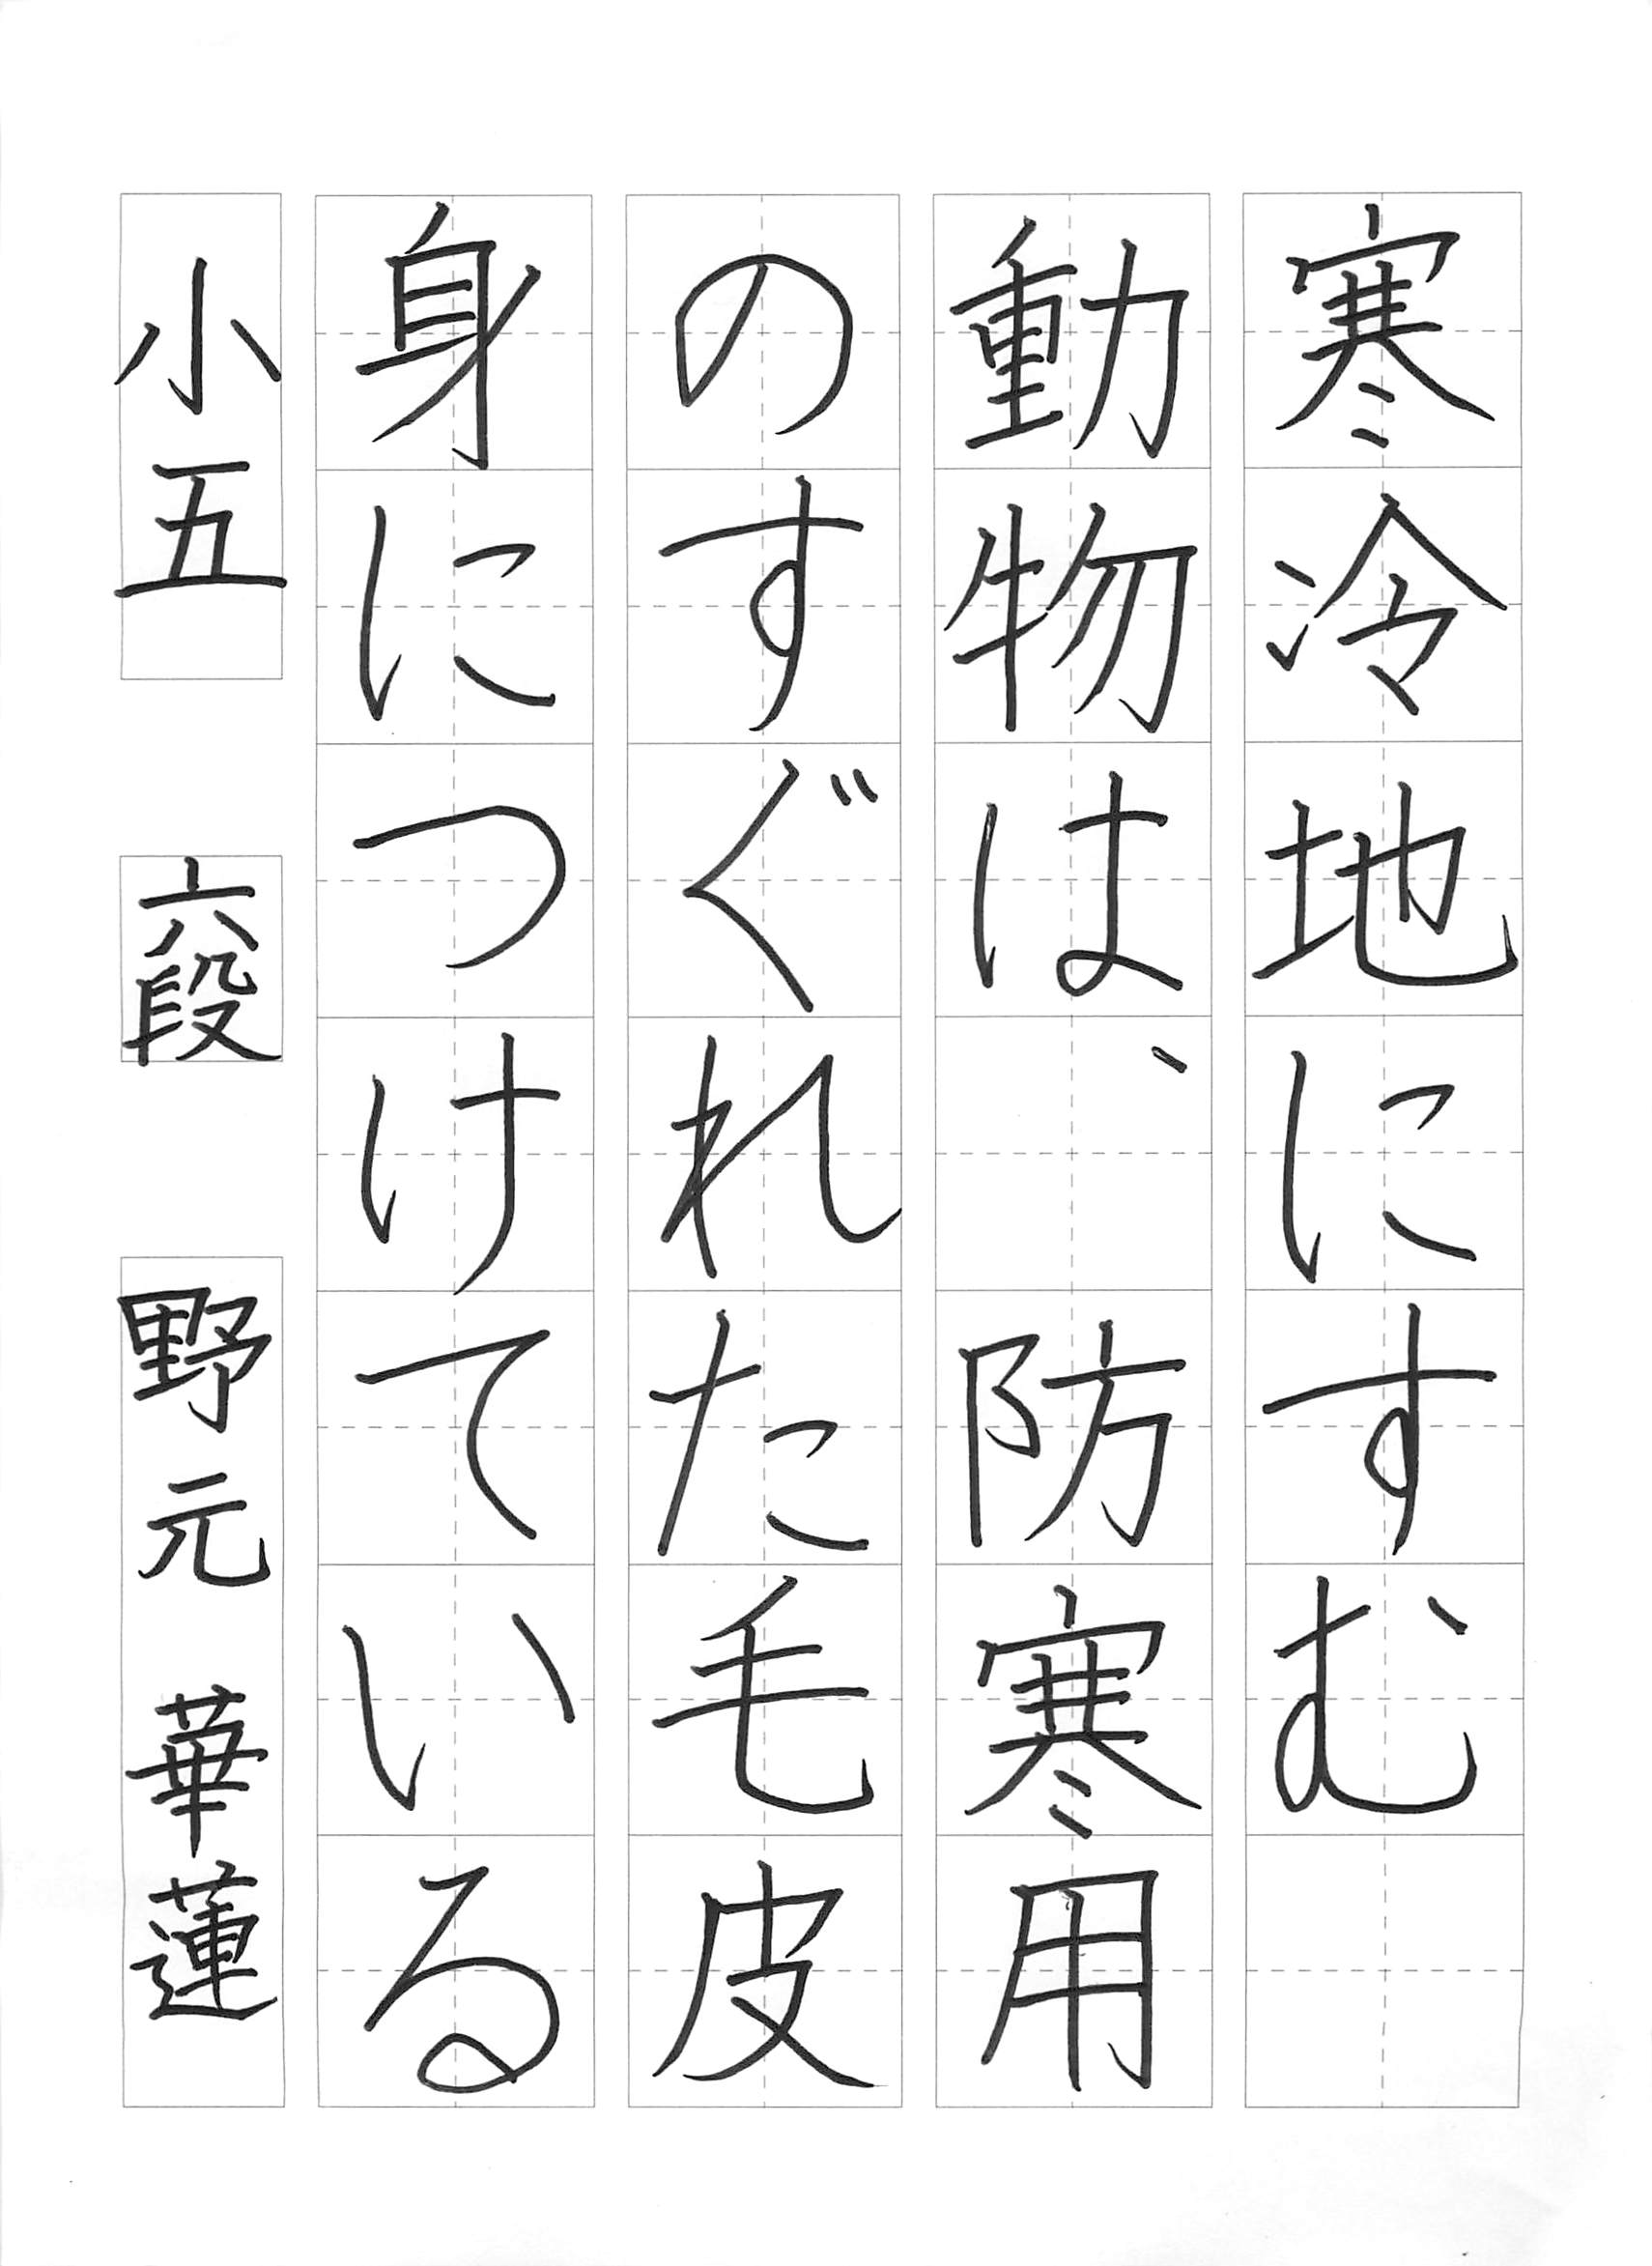 寒冷地にすむ
動物は、防寒用
のすぐれた毛皮
身につけている
小五 六段 野元華蓮